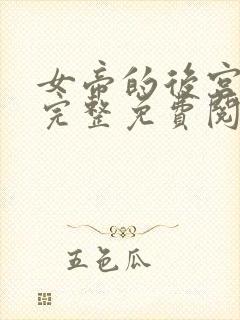 女帝的后宫
完整免費閱
五色瓜